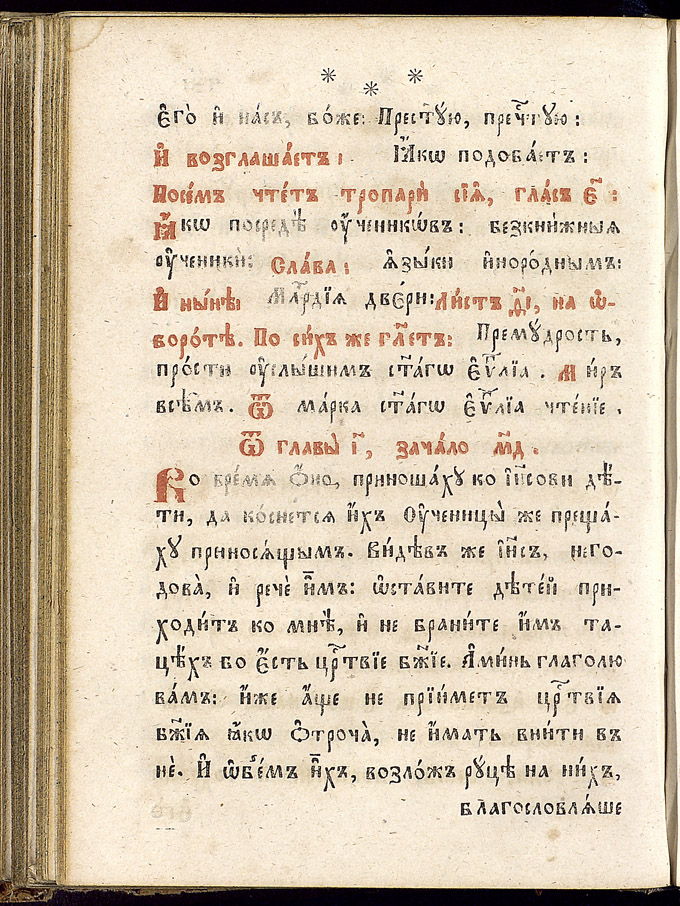 * * *
є҆го̀ и҆ на́съ, бо́же: Прест҃ꙋ́ю, преч҃тꙋю:
И҆ возглаша́етъ: Ꙗ҆́кѡ подоба́етъ:
Посе́мъ чте́тъ тропарѝ сїѧ̑, гла́съ є҃:
Ꙗ҆́кѡ посредѣ̀ ᲂу҆ченикѡ́въ: безкни́жныѧ
ᲂу҆ченикѝ: Сла́ва: ꙗ҆зы́ки и҆норо́днымъ:
И҆ ны́нѣ: Млⷭ҇рдїѧ две́ри: Ли́стъ д҃і, на ѡ҆-
воро́тѣ. По си́хъ же гл҃етъ: Премꙋ́дрость,
про́сти ᲂу҆слы́шимъ ст҃а́гѡ є҆ѵⷢ҇лїа. Ми́ръ
всѣ́мъ. Ѿ ма́рка ст҃а́гѡ є҆ѵⷢ҇лїа чте́нїе.
Ѿ главы̀ і҃, зача́ло м҃д.
Во вре́мѧ ѻ҆́но, приноша́хꙋ ко і҆и҃сови дѣ́-
ти, да ко́снетсѧ и҆́хъ Оу҆ченицы̀ же преща́-
хꙋ приносѧ́щымъ. Ви́дѣвъ же і҆и҃съ, него-
дова̀, и҆ речѐ и҆̀мъ: ѡ҆ста́вите дѣте́й при-
ходи́тъ ко мнѣ̀, и҆ не брани́те и҆́мъ та-
цѣ́хъ бо є҆́сть црⷭ҇твїе бж҃їе. А҆ми́нь глаголю
ва́мъ: и҆́же а҆́ще не прїи́метъ црⷭ҇твїѧ
бж҃їѧ ꙗ҆́кѡ ѻ҆троча̀, не и҆́мать вни́ти въ
нѐ. И҆ ѡ҆б̾е́мъ и҆̀хъ, возло́жъ рꙋцѣ̀ на ни́хъ,
благословлѧ́ше